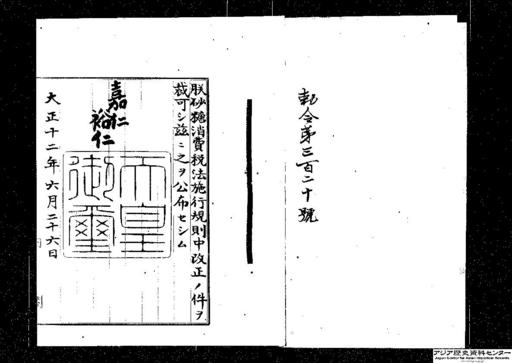 勅令第三百二十號
朕砂糖消費税法施行規則中改正ノ件ヲ
裁可シ茲ニ之ヲ公布セシム
嘉仁
裕仁
天皇
御璽
大正十二年六月二十六日
アジア歴史資料センター
Japan Center for Asian Historical Records